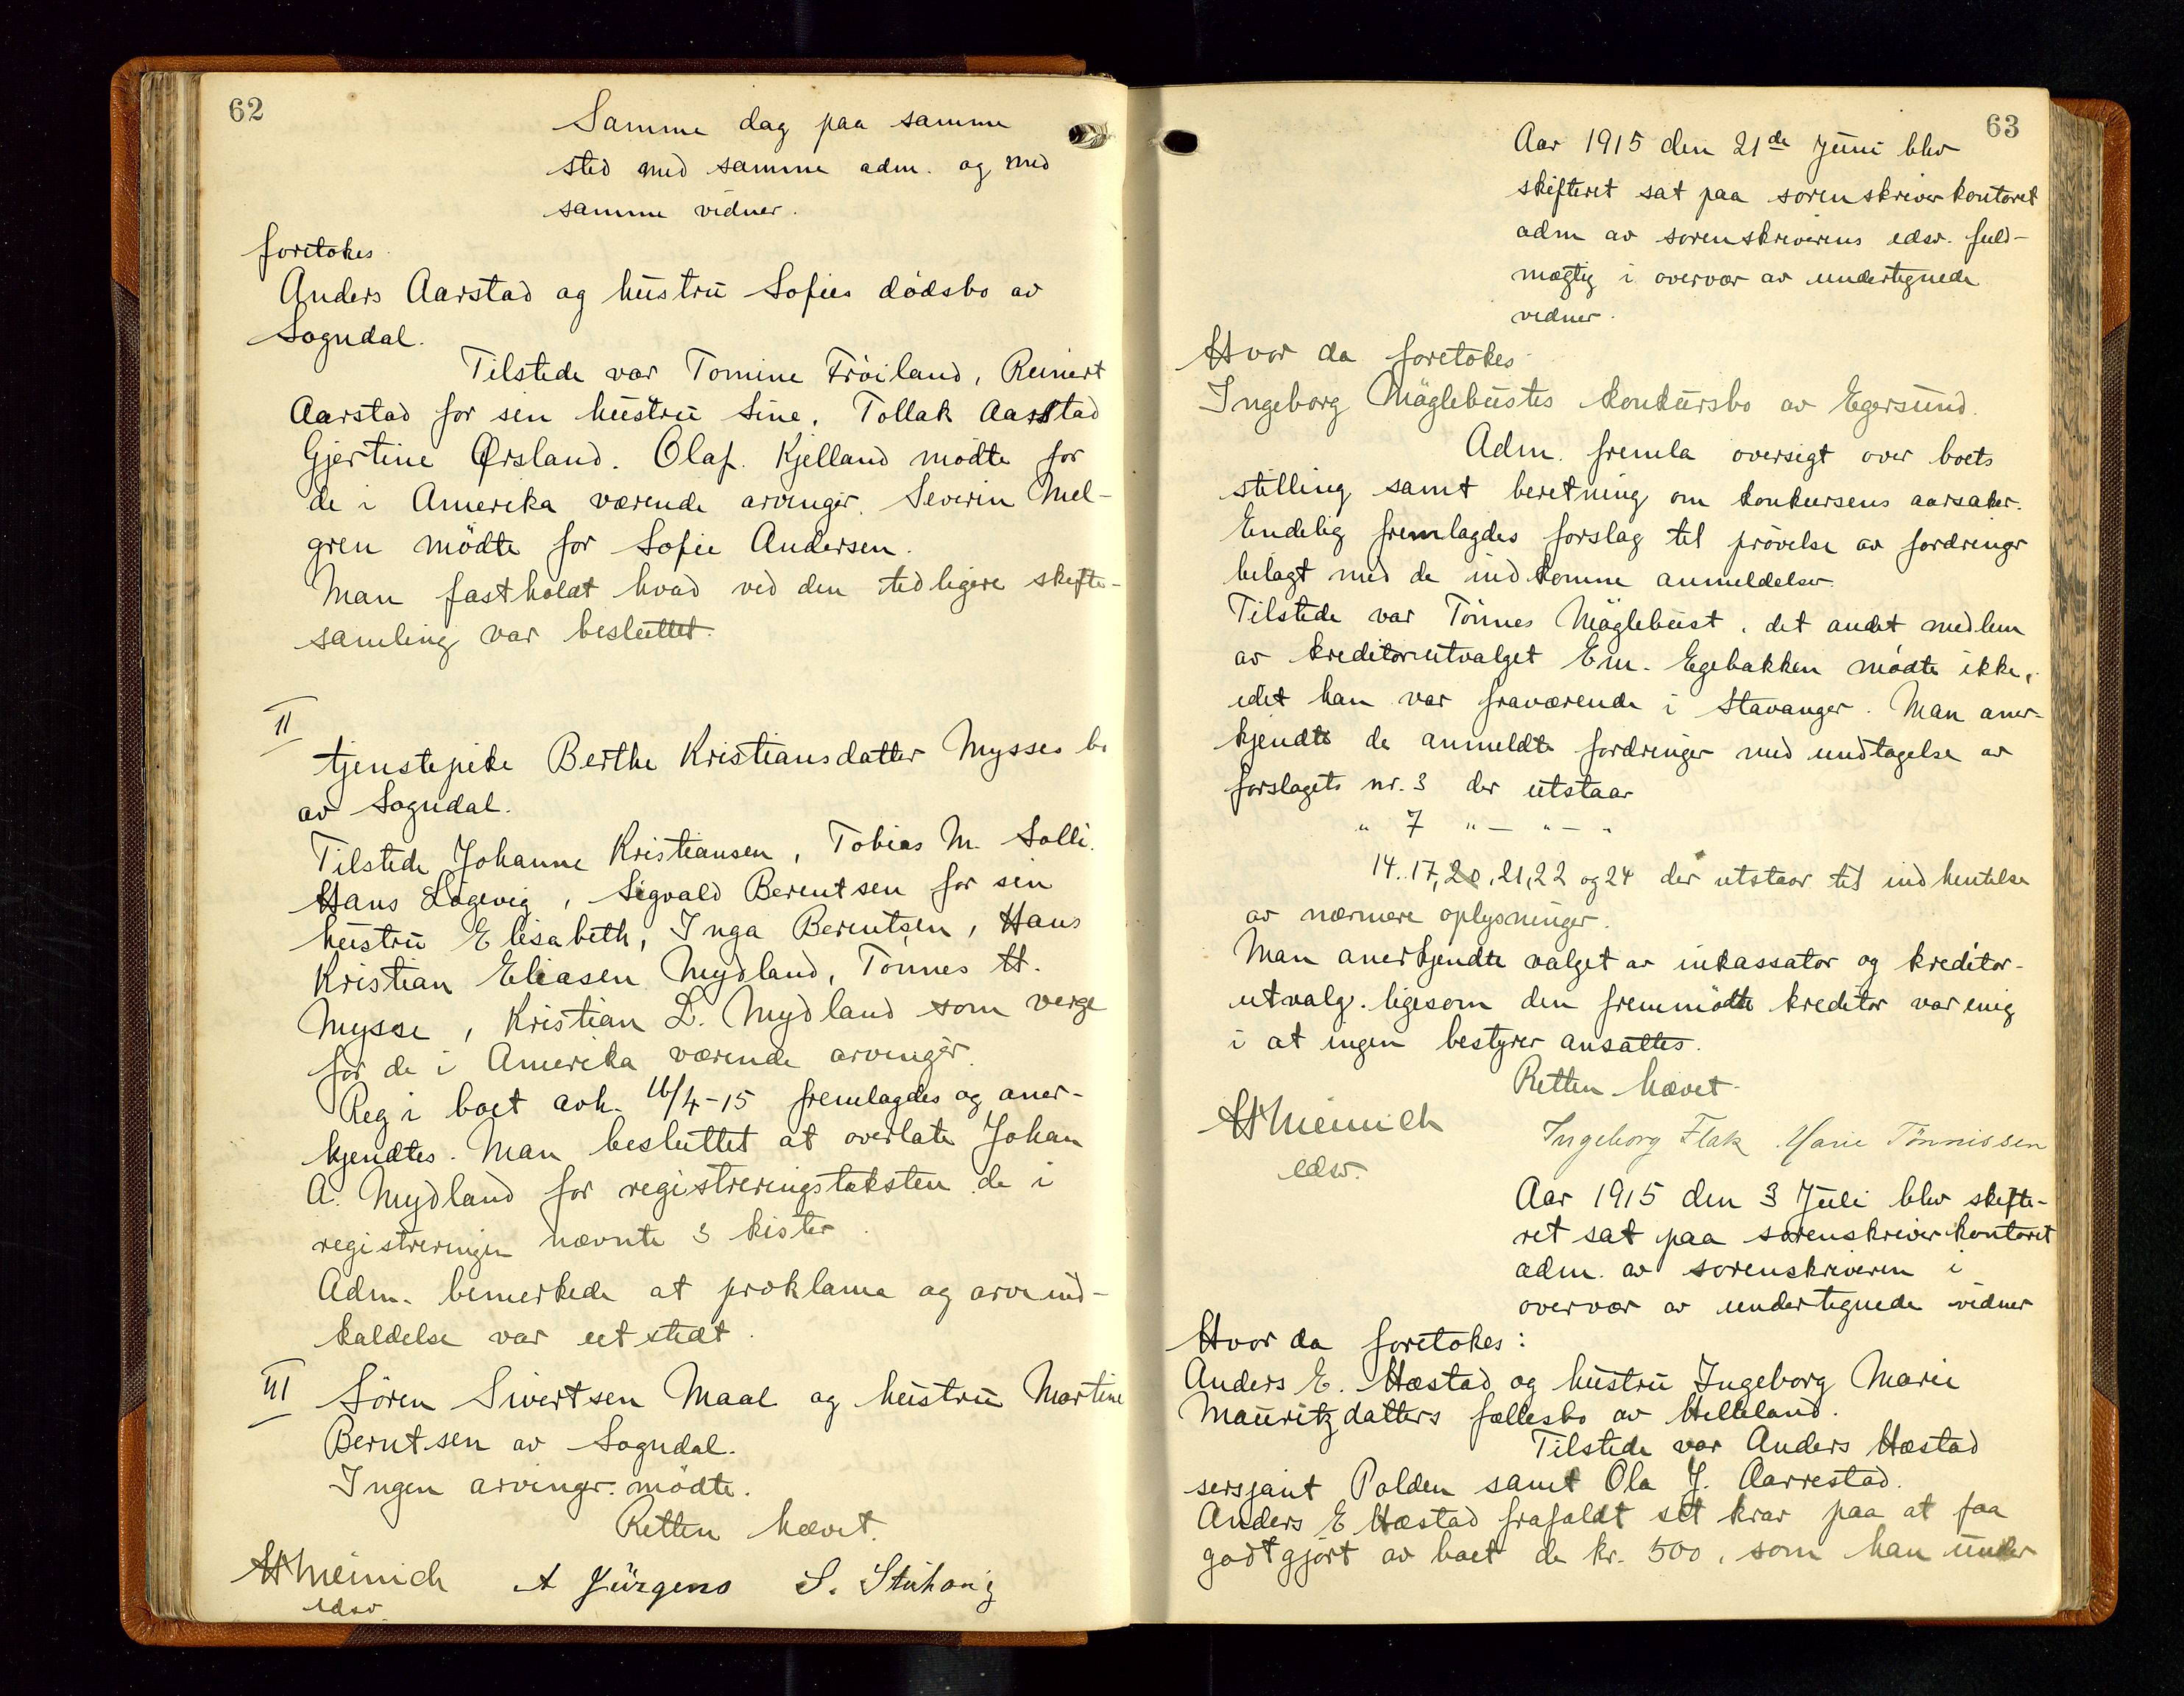 62
Samme dag paa samme
sted med samme adm. og med
samme vidner.
foretokes
Anders Aarstad og hustru Sofies dödsbo av
Sogndal.
Tilstede var Tomine Fröiland, Reinert
Aarstad for sin hustru Sine, Tollak Aarstad
Gjertine Ørsland. Olaf Kjelland mödte for
de i Amerika værende arvinger. Severin Mel-
gren mödte for Sofie Andersen.
Man fastholdt hvad ved den tidligere skifte-
samling var besluttet.
II
tjenstepike Berthe Kristiansdatter Mysses bo
av Sogndal.
Tilstede Johanne Kristiansen, Tobias M. Solli.
Hans Lögevig, Sigvald Berentsen for sin
hustru Elisabeth, Inga Berentsen, Hans
Kristian Eliasen Mydland, Tönnes H.
Mysse, Kristian L. Mydland som verge
for de i Amerika værende arvinger.
Reg i boet avh. 16/4-15 fremlagdes og aner-
kjendtes. Man besluttet at overlate Johan
A. Mydland for registreringstaksten de i
registreringen nævnte 3 kister.
Adm. bemerkede at proklama og arveind-
kaldelse var utstedt.
III Sören Sivertsen Maal og hustru Martine
Berntsen av Sogndal.
Ingen arvinger mödte.
Retten hævet.
HHeinich A Jürgens S.
edsv.
63
Aar 1915 den 21de Juni blev
skifteret sat paa sorenskriverkontoret
adm av sorenskriverens edsv. fuld-
mægtig i overvær av undertegnede
vidner.
Hvor da foretokes
Ingeborg Mäglebusts konkursbo av Egersund.
Adm. fremla oversigt over boets
stilling samt beretning om konkursens aarsaker.
Endelig fremlagdes forslag til prövelse av fordringer
bilagt med de indkomne anmeldelser.
Tilstede var Tönnes Mäglebust, det andet medlem
av kreditorutvalget Em. Egebakken mödte ikke,
idet han var fraværende i Stavanger. Man aner-
kjendte de anmeldte fordringer med undtagelse av
forslagets nr. 3 der utstaar
" 7 " — " — "
14. 17, 20, 21, 22 og 24 der utstaar til indhentelse
av nærmere oplysninger.
Man anerkjendte valget av inkassator og kreditor-
utvalg. ligesom den fremmödte kreditor var enig
i at ingen bestyrer ansattes.
Retten hævet.
HHeinich Ingeborg Flak Marie Tönnissen
edsv.
Aar 1915 den 3 Juli blev skifte-
ret sat paa sorenskriverkontoret
adm. av sorenskriveren i
overvær av undertegnede vidner
Hvor da foretokes:
Anders E. Hæstad og hustru Ingeborg Marie
Mauritzdatters fællesbo av Helleland.
Tilstede var Anders Hæstad
sersjant Polden samt Ola J. Aarrestad.
Anders E Hæstad frafaldt sit krav paa at faa
godtgjort av boet de kr. 500, som han under